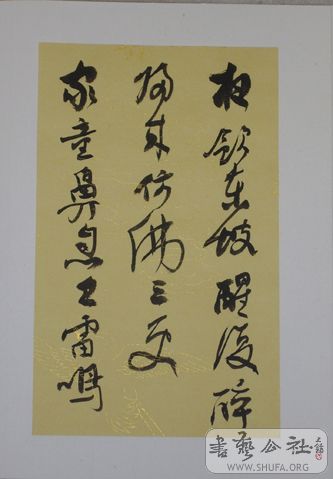 夜饮东坡醒复醉
归来仿佛三更
家童鼻息已雷鸣
書藝公社
WWW.SHUFA.ORG